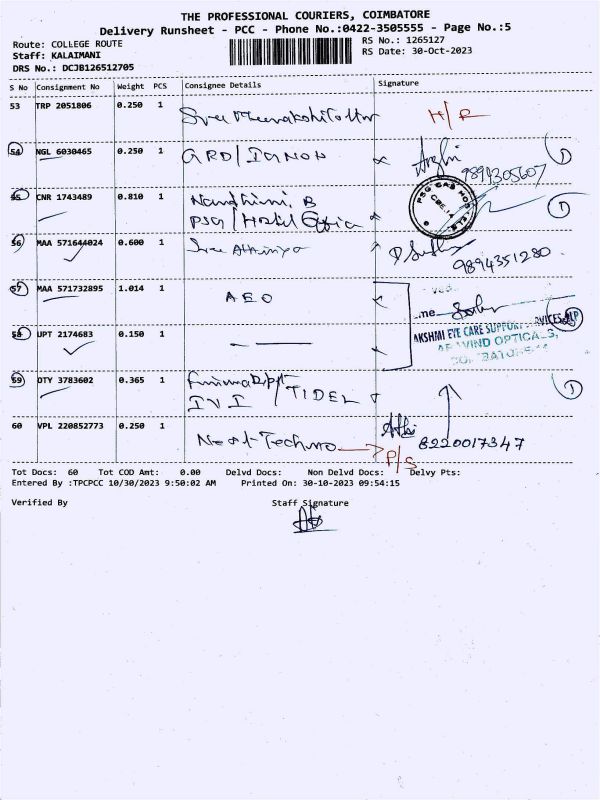 THE PROFESSIONAL COURIERS, COIMBATORE
Delivery Runsheet - PCC - Phone No.:0422-3505555 - Page No.:5
Route: COLLEGE ROUTE
RS No.: 1265127
Staff: KALAIMANI
RS Date: 30-Oct-2023
DRS No.: DCJB126512705
S No Consignment No Weight PCS Consignee Details Signature
53 TRP 2051806 0.250 1
H/R
54 NGL 6030465 0.250 1 GRD/IGNOU
9894305607
55 CNR 1743489 0.810 1 Nandhini. B
PSG / Hostel Office
PSG CAS HOSTELS
CBE-14
56 MAA 571644024 0.600 1 Sree
9894351280
57 MAA 571732895 1.014 1 AEO
58 UPT 2174683 0.150 1
EYE CARE SUPPORT
OPTICALS,
59 DTY 3783602 0.365 1
/ TIDEL
60 VPL 220852773 0.250 1 Next-Techno
8220017347
P/S
Tot Docs: 60 Tot COD Amt: 0.00 Delvd Docs: Non Delvd Docs: Delvy Pts:
Entered By :TPCPCC 10/30/2023 9:50:02 AM Printed On: 30-10-2023 09:54:15
Verified By Staff Signature